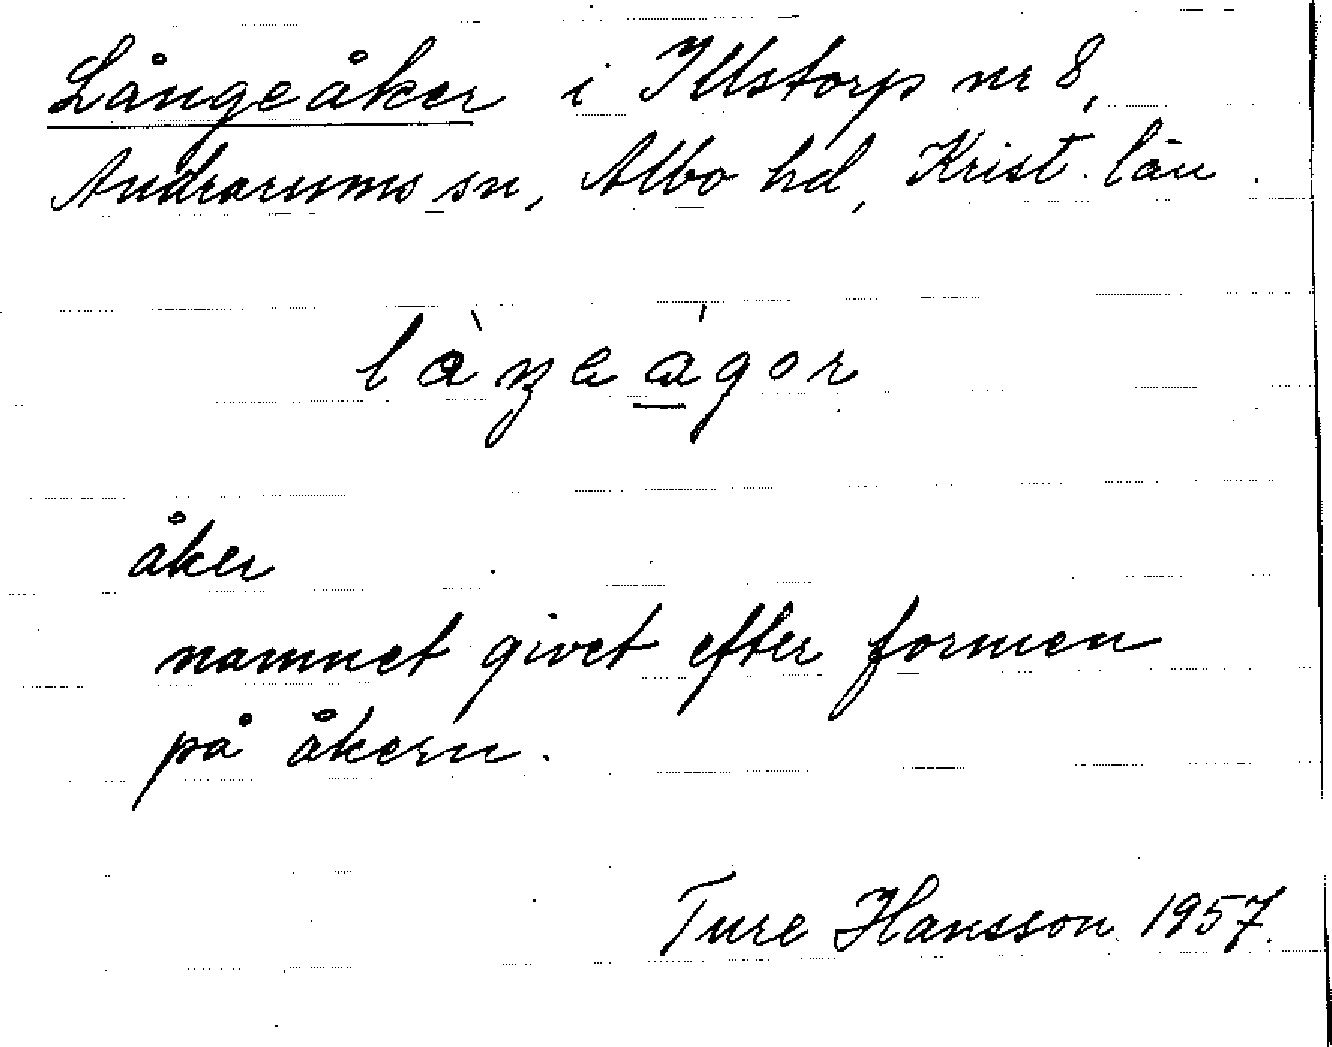 Långeåker i Illstorp nr 8,
Andrarums sn, Albo hd, Krist. län.
làŋeágor
åker
namnet givet efter formen
på åkern.
Ture Hansson 1957.